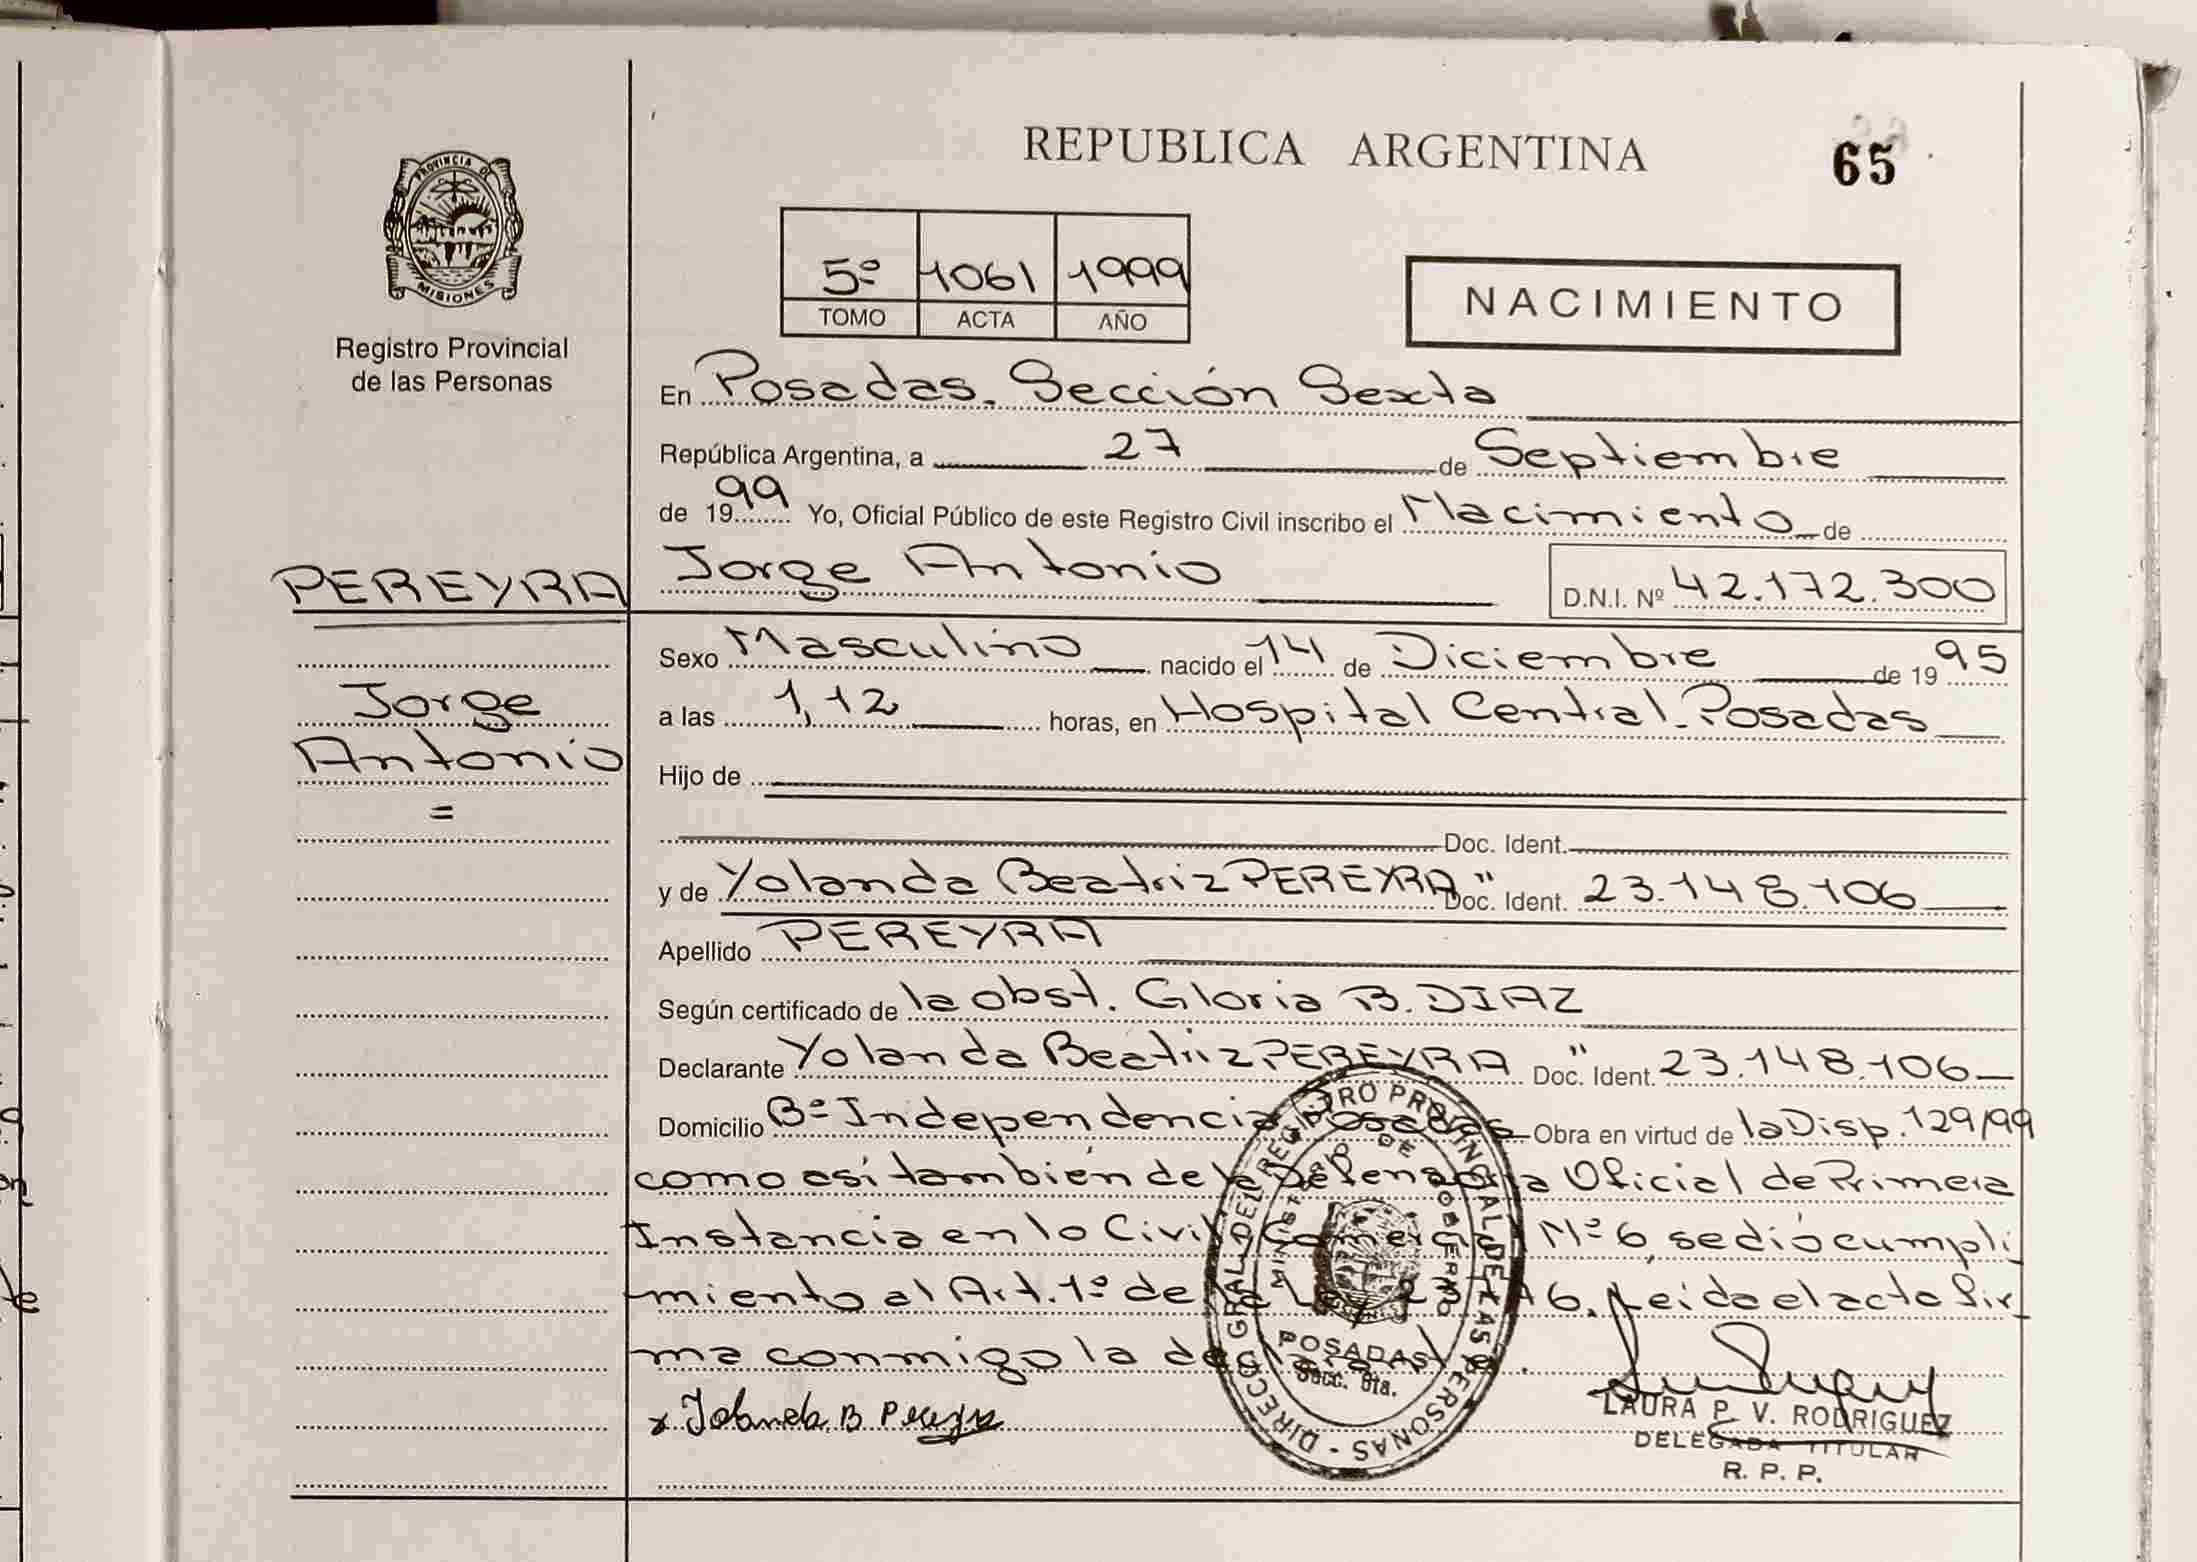 REPUBLICA ARGENTINA
65
PROVINCIA DE
MISIONES
Registro Provincial
de las Personas
5º 1061 1999
TOMO ACTA AÑO
NACIMIENTO
En Posadas. Sección Sexta
República Argentina, a 27 de Septiembre
de 1999 Yo, Oficial Público de este Registro Civil inscribo el Nacimiento de
PEREYRA
Jorge Antonio D.N.I. Nº 42.172.300
Sexo Masculino nacido el 14 de Diciembre de 1995
Jorge
a las 1,12 horas, en Hospital Central. Posadas
Antonio
Hijo de
=
Doc. Ident.
y de Yolanda Beatriz PEREYRA " Doc. Ident. 23.148.106
Apellido PEREYRA
Según certificado de la obst. Gloria B. DIAZ
Declarante Yolanda Beatriz PEREYRA Doc. " Ident. 23.148.106
Domicilio Bº Independencia Posadas Obra en virtud de la Disp. 129/99
como así también de la Defensoría Oficial de Primera
Instancia en lo Civil Comercial Nº 6, se dió cumpli
miento al Art. 1º de la Ley Leida el acta fir
ma conmigo la declarante.
x Yolanda B Pereyra
DIRECC. GRAL. DEL REGISTRO PROVINCIAL DE LAS PERSONAS
MINIST. DE GOBIERNO
POSADAS
Secc. 6ta.
LAURA P. V. RODRIGUEZ
DELEGADA TITULAR
R. P. P.